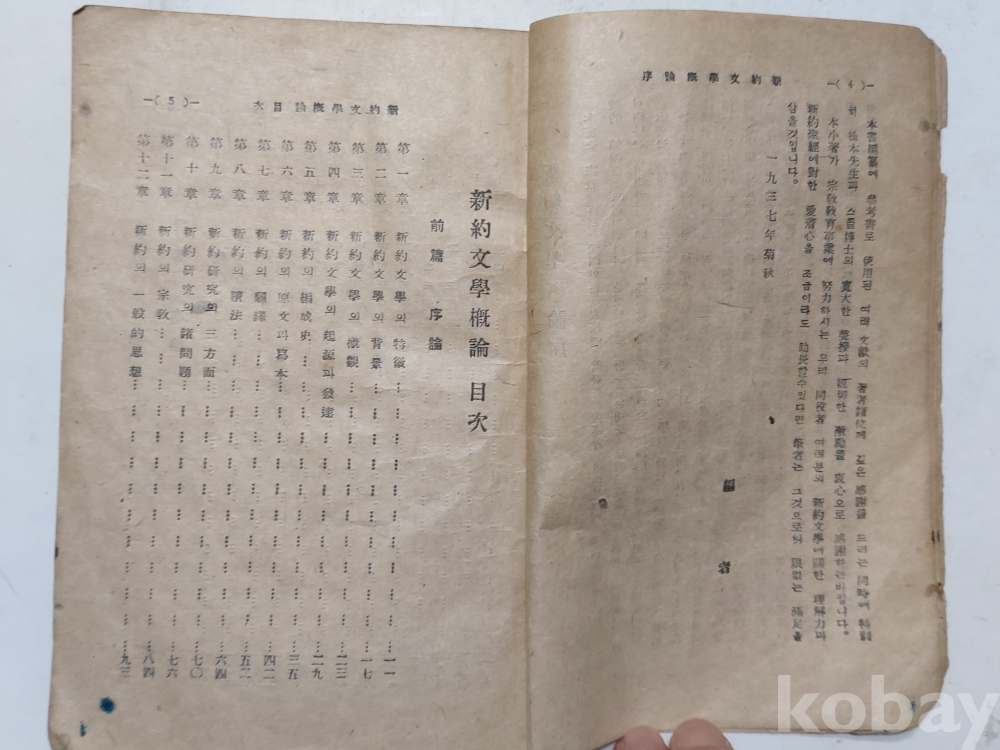 —( 4 )—
新約文學概論序
本書編纂에 參考書로 使用된 여러 文獻의 著者諸位께 깊은 感謝를 드리는 同時에 特別
히 松本先生과 스톨博士의 寬大한 愛護과 親切한 激勵를 衷心으로 感謝하는바입니다。
本小著가 宗敎敎育事業에 努力하시는 우리 同役者 여러분의 新約文學에 關한 理解力과
新約聖經에 對한 愛着心을 조금이라도 助長할수있다면 筆者는 그것으로써 限없는 滿足을
삼을것입니다。
一九三七年 菊秋
編者
新約文學概論目次
—( 5 )—
新約文學概論 目次
前篇 序論
第一章 新約文學의 特徵……一一
第二章 新約文學의 背景……一七
第三章 新約文學의 概觀……二三
第四章 新約文學의 起源과 發達……二九
第五章 新約의 編成史……三五
第六章 新約의 原文과 寫本……四二
第七章 新約의 飜譯……五二
第八章 新約의 讀法……六四
第九章 新約研究의 三方面……七〇
第十章 新約研究의 諸問題……七六
第十一章 新約의 宗敎……八四
第十二章 新約의 一般的思想……九三
kobay